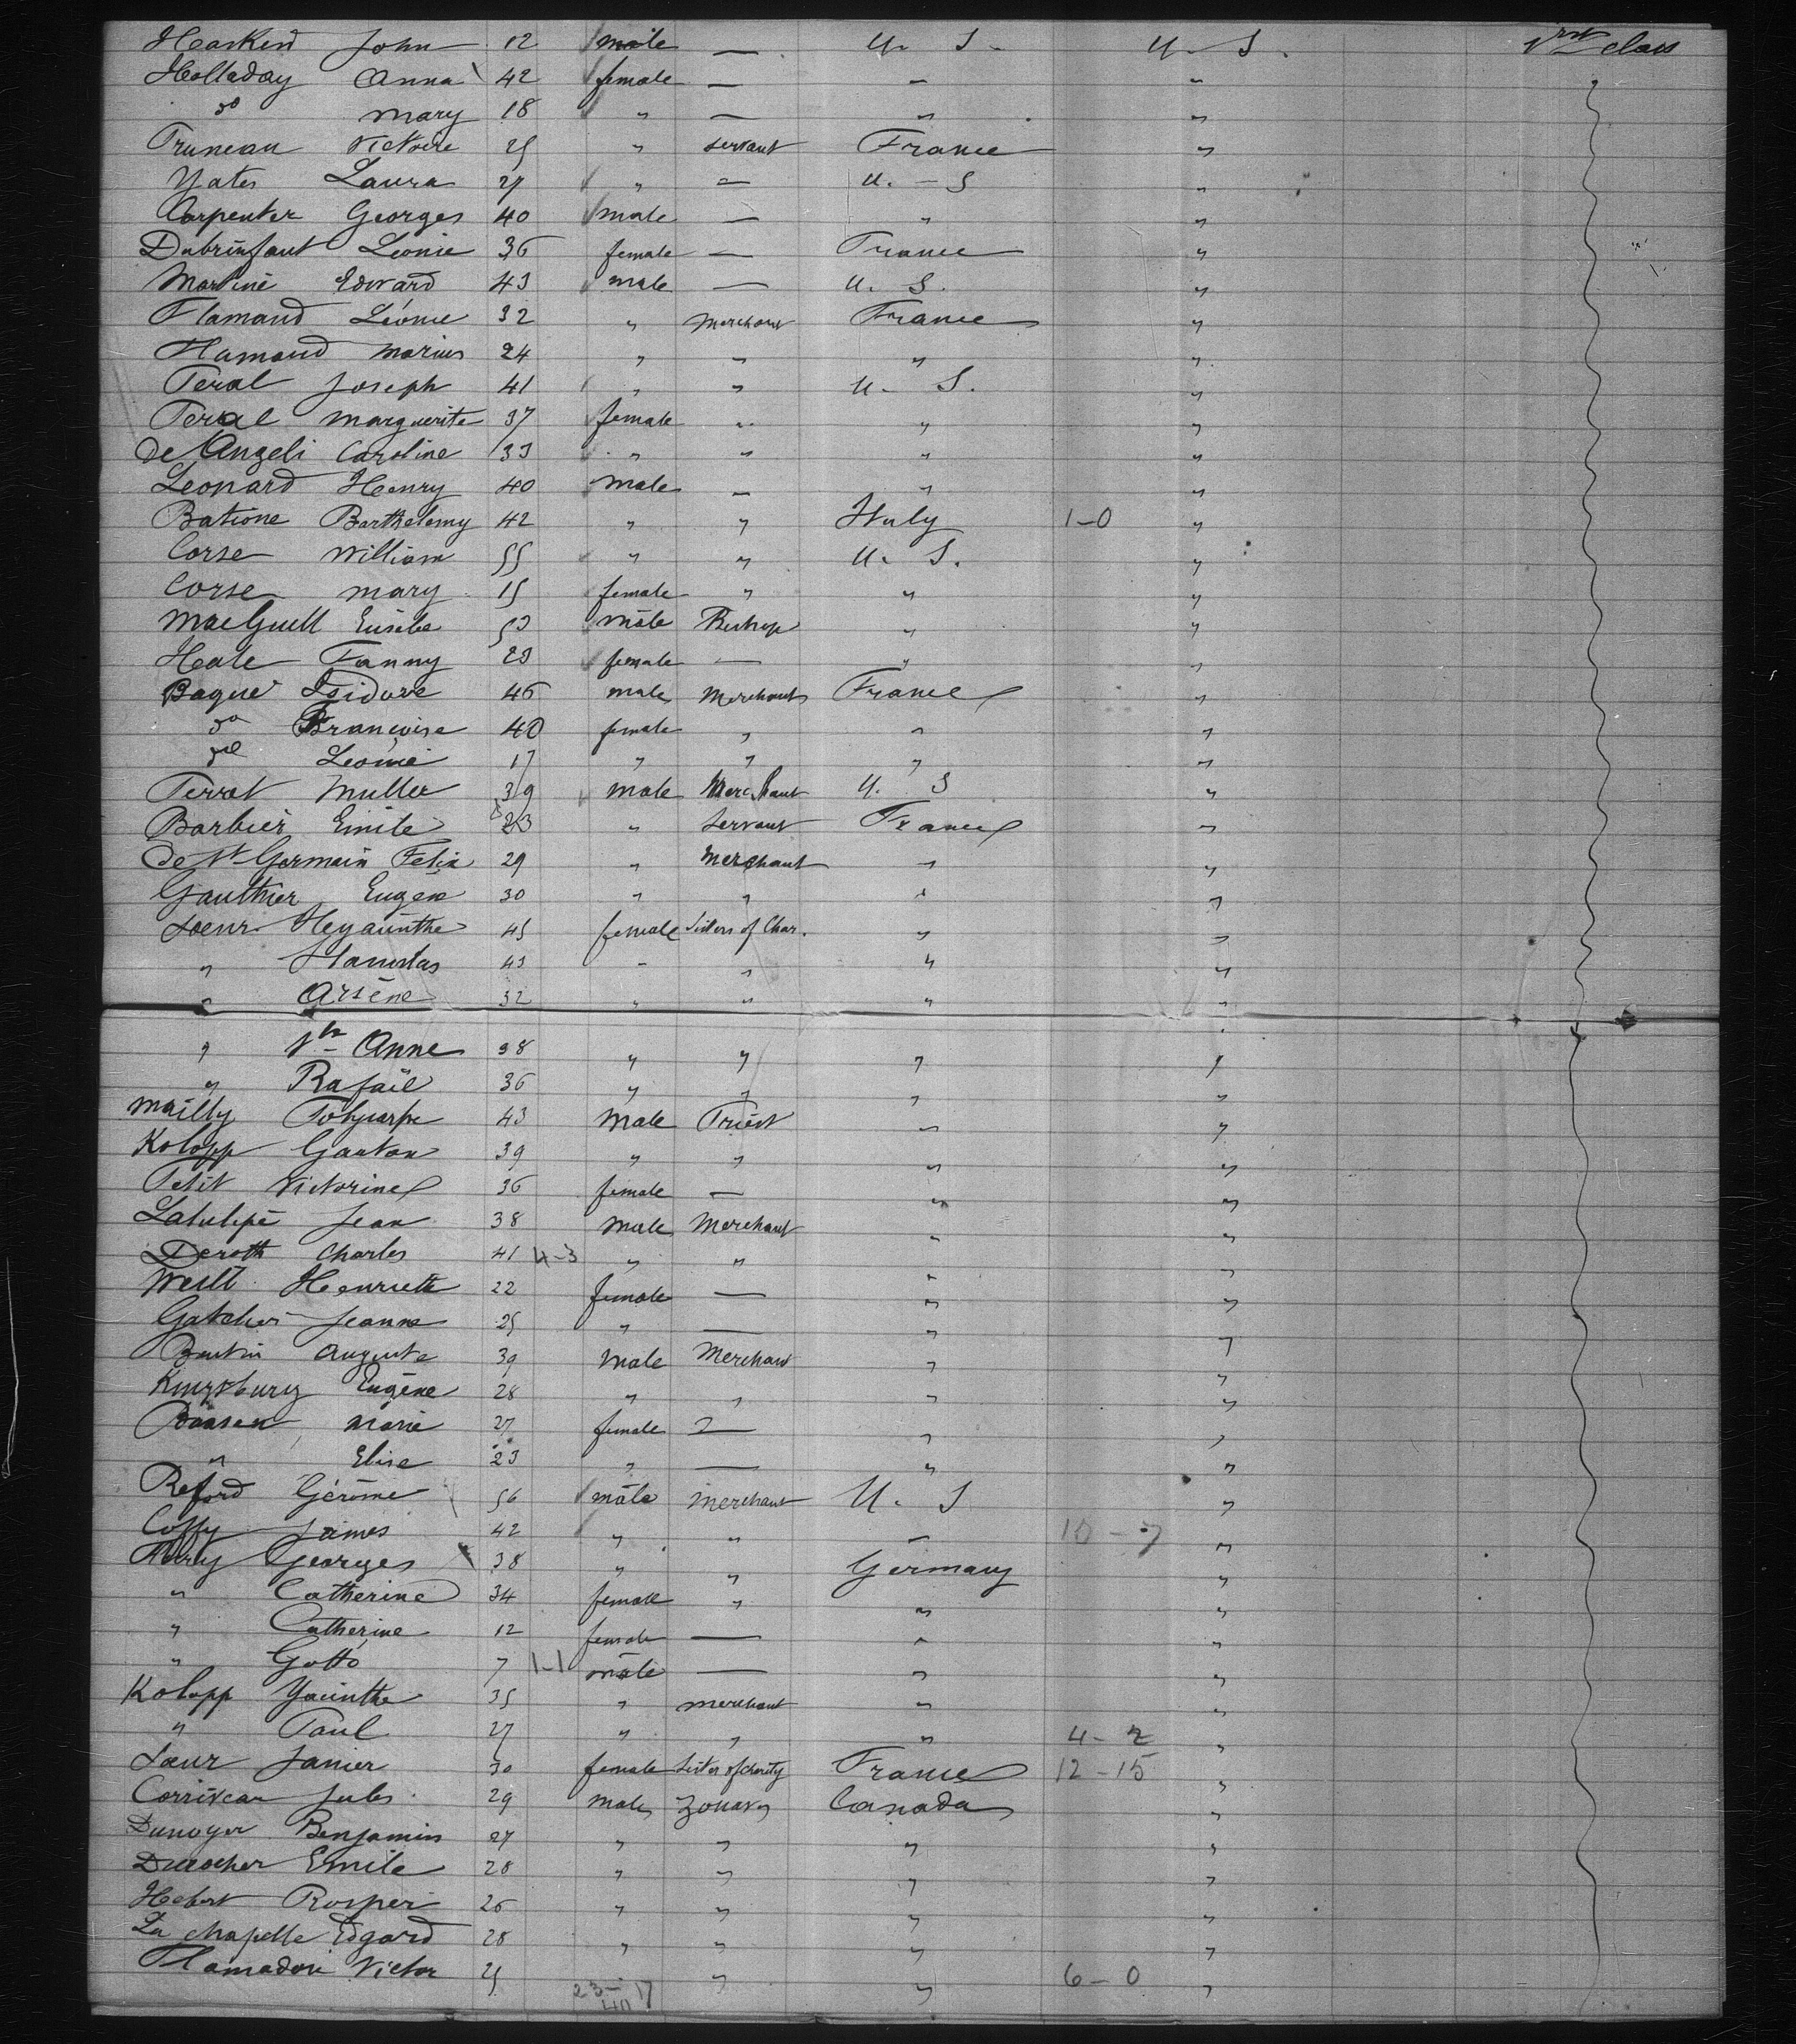 Heasken John 12 male — U. S. U. S. 1rst class
Holladay Anna 42 female — — "
do Mary 18 " — " "
Pruneau Victoire 25 " servant France "
Yates Laura 27 " — U. S "
Carpenter Georges 40 male — " "
Dubrinfaut Leonie 36 female — France "
Martine Edward 43 male — U. S. "
Flamand Léonie 32 " Merchant France "
Flamand Marius 24 " " " "
Peral Joseph 41 " " U. S. "
Peral Marguerite 37 female " " "
De Angeli Caroline 33 " " " "
Leonard Henry 40 male — " "
Batione Barthelemy 42 " " Italy 1-0 "
Corse William 55 " " U. S. "
Corse Mary 15 female " " "
Eusebe 53 male Bishop " "
Heale Fanny 23 female — " "
Bagué Isidore 46 male Merchant France "
do Françoise 40 female " " "
do Leonie 17 " " " "
Perrot Muller 39 male Merchant U. S "
Barbier Emile 23 " Servant France "
De St Germain Felix 29 " Merchant " "
Gauthier Eugène 30 " " " "
Soeur Heyacinthe 45 female Sisters of Char. " "
" Stanislas 43 " " " "
" Arsène 32 " " " "
" Ste Anne 38 " " " "
" Rafaël 36 " " " "
Mailly Polycarpe 43 Male Priest " "
Kolopp Gaston 39 " " " "
Petit Victorine 36 female — " "
Latulipe Jean 38 Male Merchant " "
Deroth Charles 41 4-3 " " " "
Weill Henriette 22 female — " "
Jeanne 25 " — " "
Auguste 39 Male Merchant " "
Kingsbury Eugène 28 " " " "
Marie 27 female — " "
" Elise 23 " — " "
Reford Gérôme 56 male merchant U. S "
Coffy James 42 " " — 10-7 "
Georges 38 " " Germany "
" Catherine 34 female " " "
" Catherine 12 female — " "
" Gotto 7 1-1 male — " "
Kolopp Yacinthe 35 " merchant " "
" Paul 27 " " " 4-2 "
Sœur Janier 30 female Sister of charity France 12-15 "
Corriveau Jules 29 male Zouaves Canada "
Dunoyer Benjamin 27 " " " "
Durocher Emile 28 " " " "
Hebert Rosper 26 " " " "
La chapelle Edgard 28 " " " "
Victor 25 " " 6-0 "
23-17
40